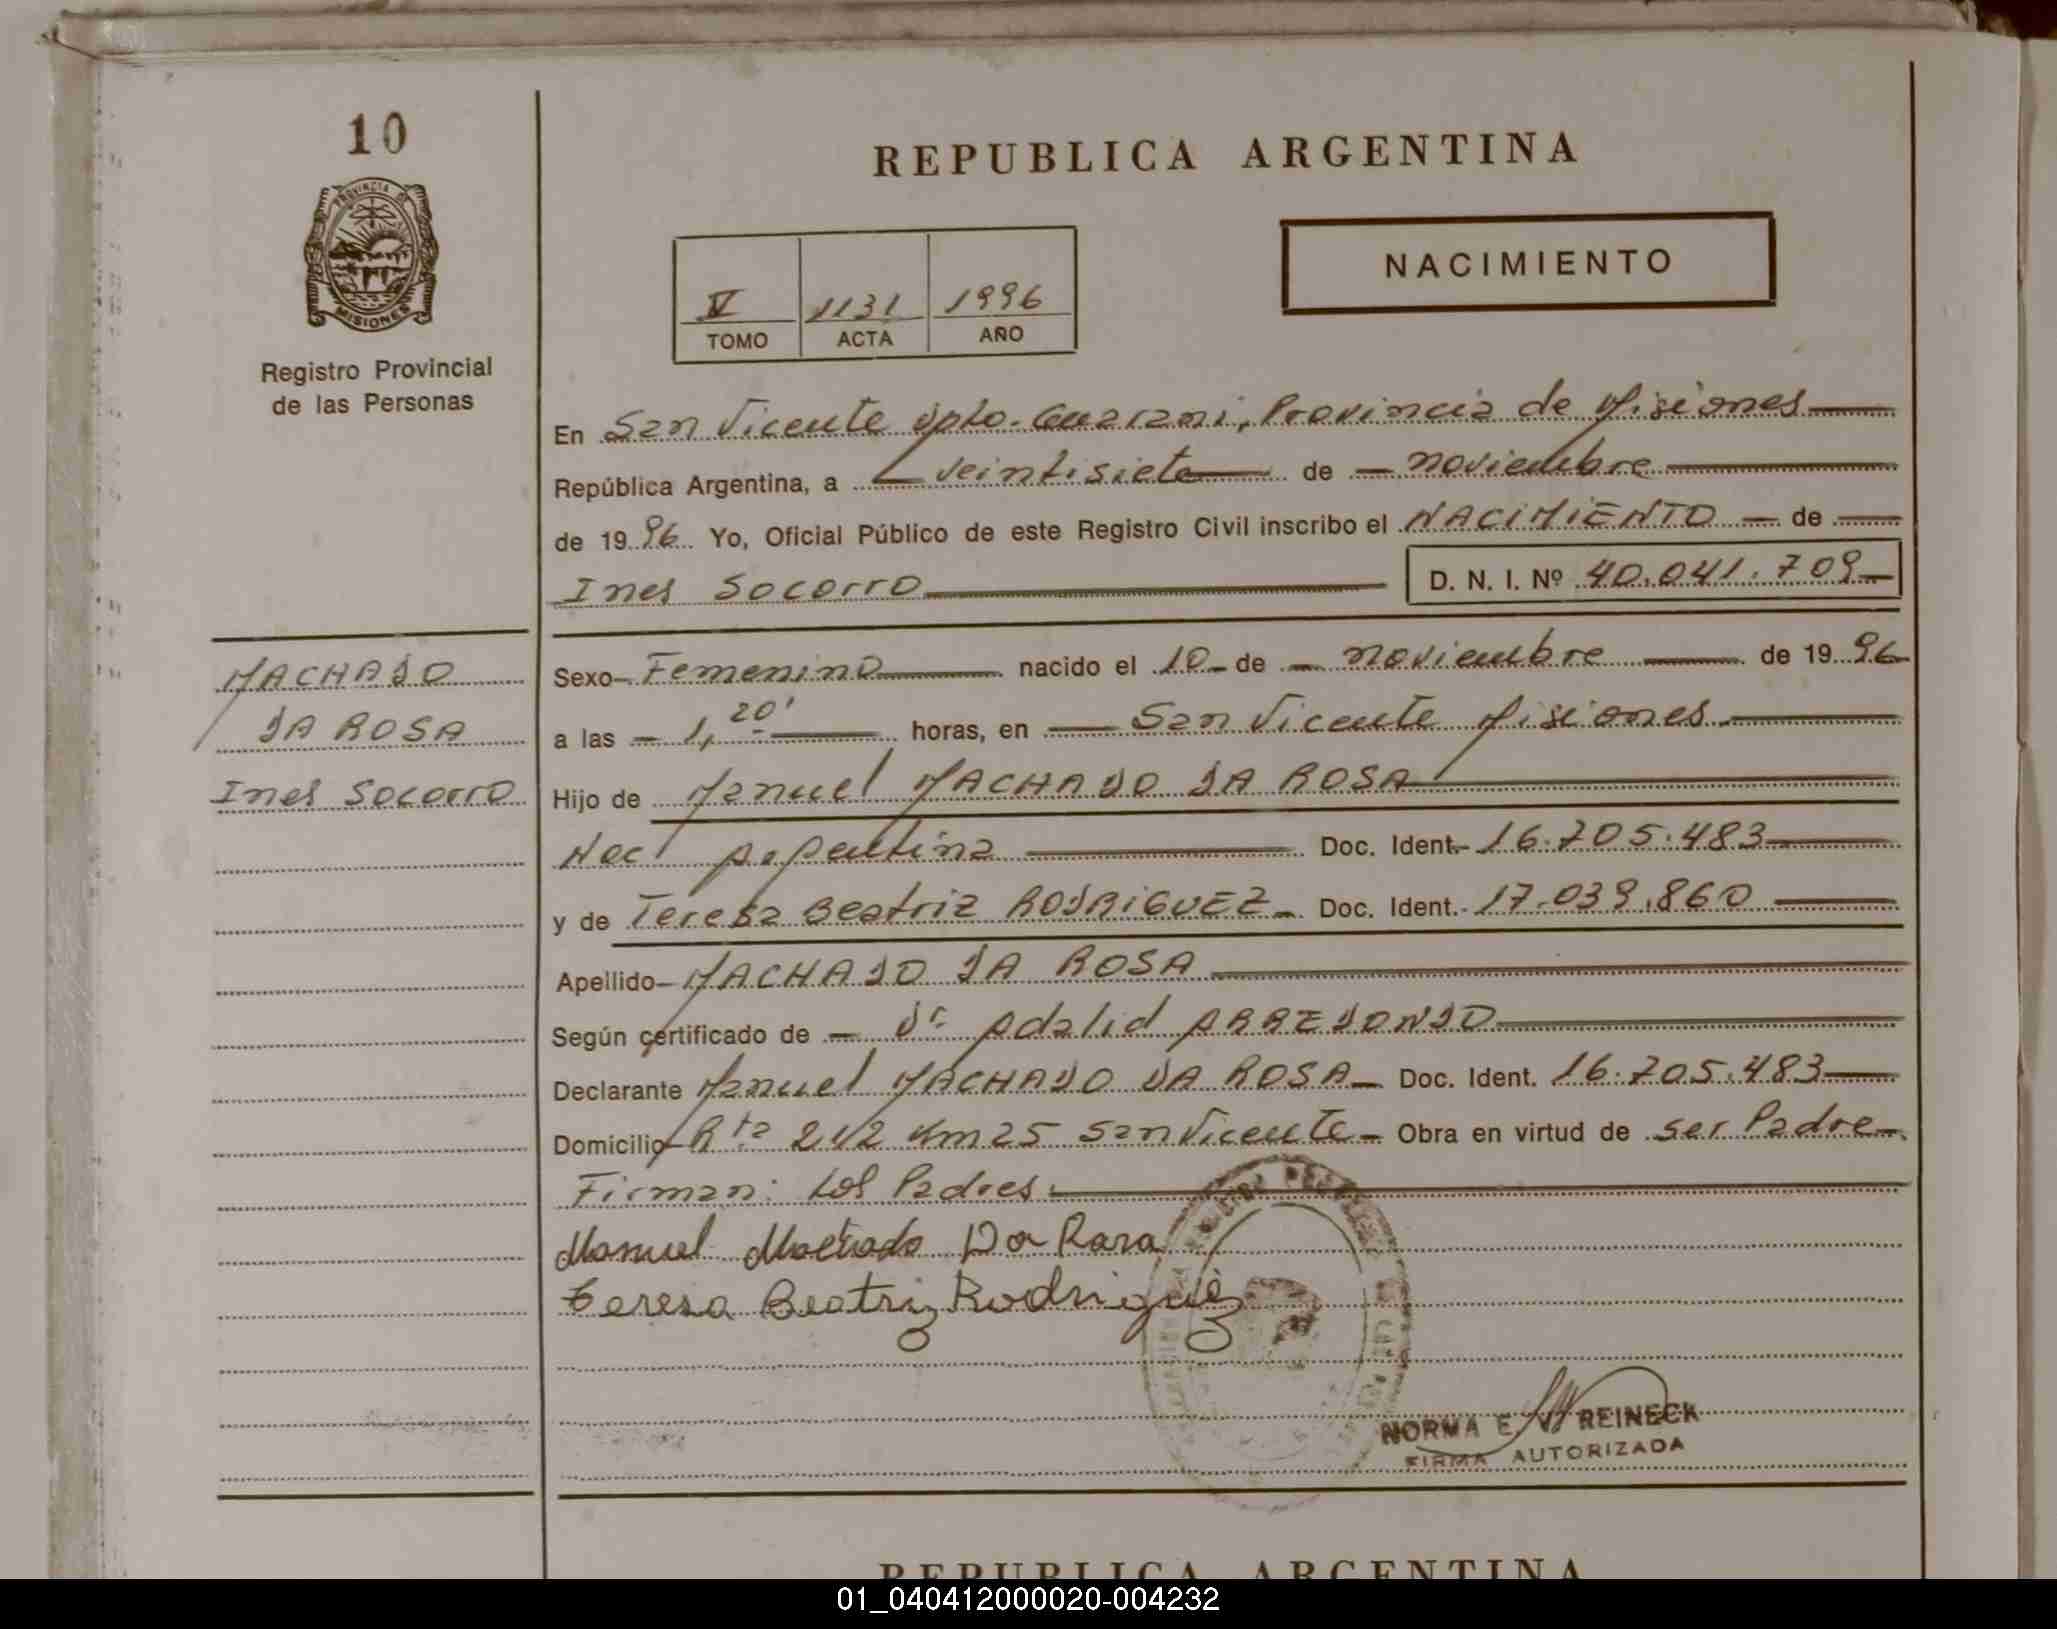 10
PROVINCIA DE
MISIONES
Registro Provincial
de las Personas
MACHADO
DA ROSA
Ines Socorro
REPUBLICA ARGENTINA
V 1131 1996
TOMO ACTA AÑO
NACIMIENTO
En San Vicente Dpto. Guarani, Provincia de Misiones
República Argentina, a veintisiete de noviembre
de 1996 Yo, Oficial Público de este Registro Civil inscribo el NACIMIENTO de
Ines Socorro D. N. I. Nº 40.041.709
Sexo Femenino nacido el 10 de noviembre de 1996
a las 1,20' horas, en San Vicente Misiones
Hijo de Manuel MACHADO DA ROSA
Nac Argentina Doc. Ident. 16.705.483
y de Teresa Beatriz RODRIGUEZ Doc. Ident. 17.039.860
Apellido MACHADO DA ROSA
Según certificado de Dr. Adalid ARREDONDO
Declarante Manuel MACHADO DA ROSA Doc. Ident. 16.705.483
Domicilio Rta 212 Km 25 San Vicente Obra en virtud de ser Padre
Firman: Los Padres.
Manuel Machado Da Rosa
Teresa Beatriz Rodriguez
NORMA E. REINECK
FIRMA AUTORIZADA
REPUBLICA ARGENTINA
01_040412000020-004232